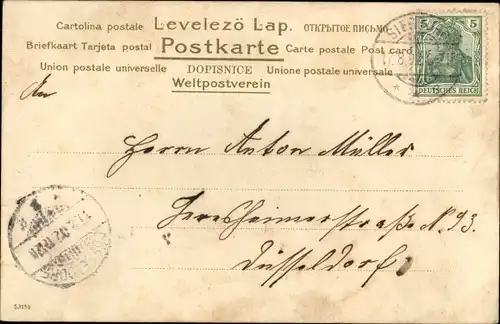 Cartolina postale Levelező Lap. ОТКРЫТОЕ ПИСЬМО
Briefkaart Tarjeta postal Postkarte Carte postale Post card
Union postale universelle DOPISNICE Unione postale universale
Weltpostverein
5 5
DEUTSCHES REICH
An
Herrn Anton Müller
Düsseldorf